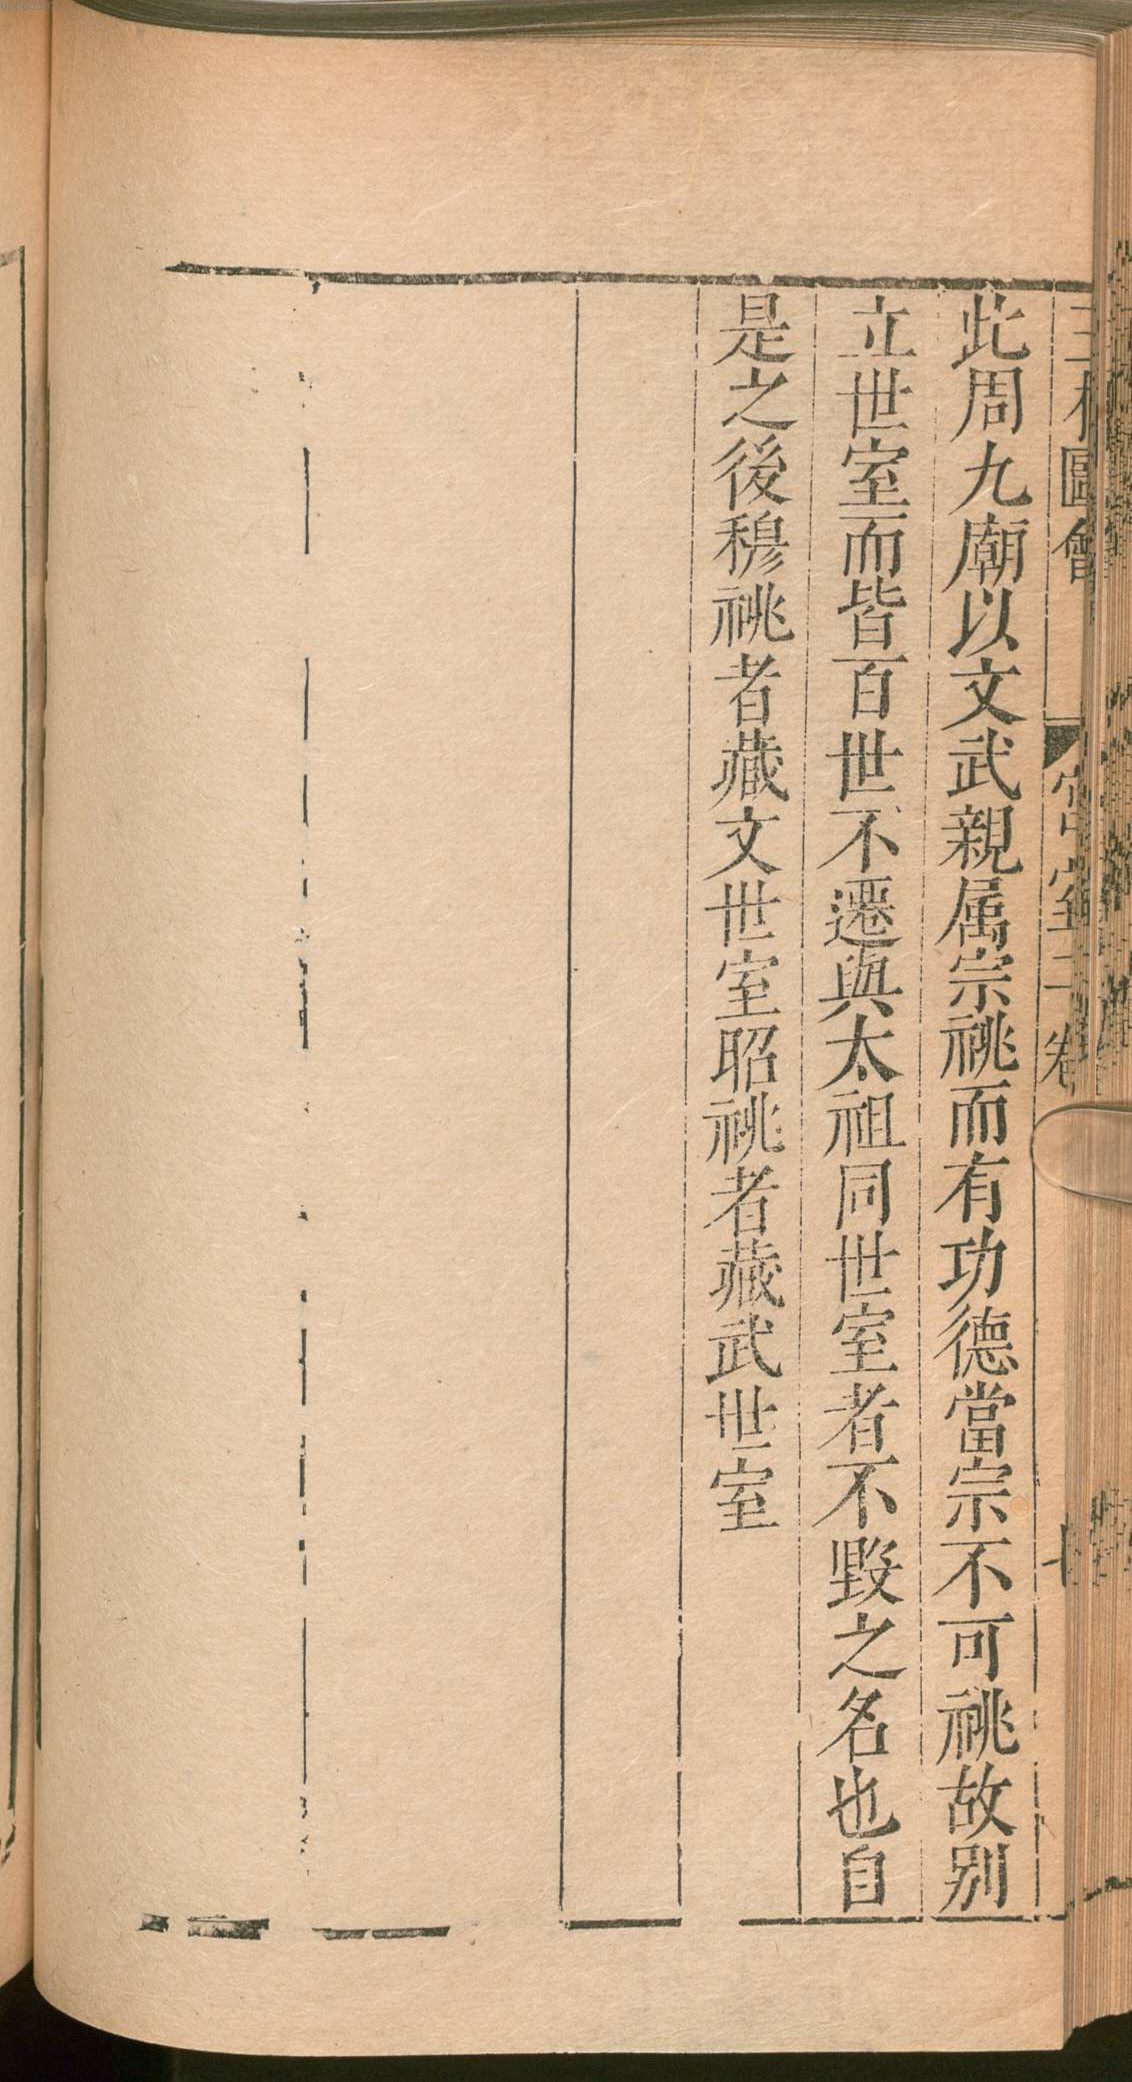 圖會 宮室二卷
此周九廟以文武親属宗祧而有功德當宗不可祧故别
立世室而皆百世不遷與太祖同世室者不毀之名也自
是之後穆祧者藏文世室昭祧者藏武世室